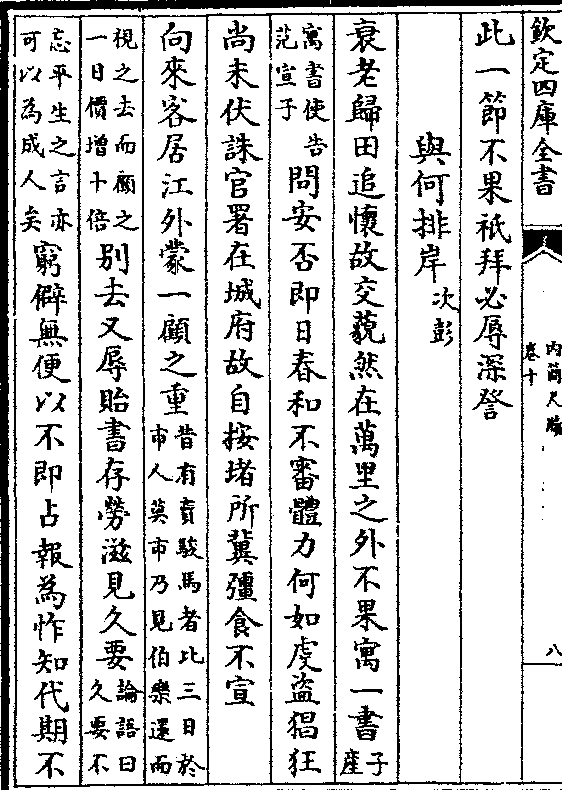 欽定四庫全書
內簡尺牘
卷十
八
此一節不果祇拜必辱深詧
與何排岸次彭
衰老歸田追懷故交藐然在萬里之外不果寓一書子產
寓書使告范宣子問安否即日春和不審體力何如虔盜猖狂
尚未伏誅官署在城府故自按堵所冀彊食不宣
向來客居江外蒙一顧之重昔有賣駿馬者比三日於市人莫市乃見伯樂還而
視之去而顧之一日價增十倍別去又辱貽書存勞滋見久要論語曰久要不
忘平生之言亦可以為成人矣窮僻無便以不即占報為怍知代期不